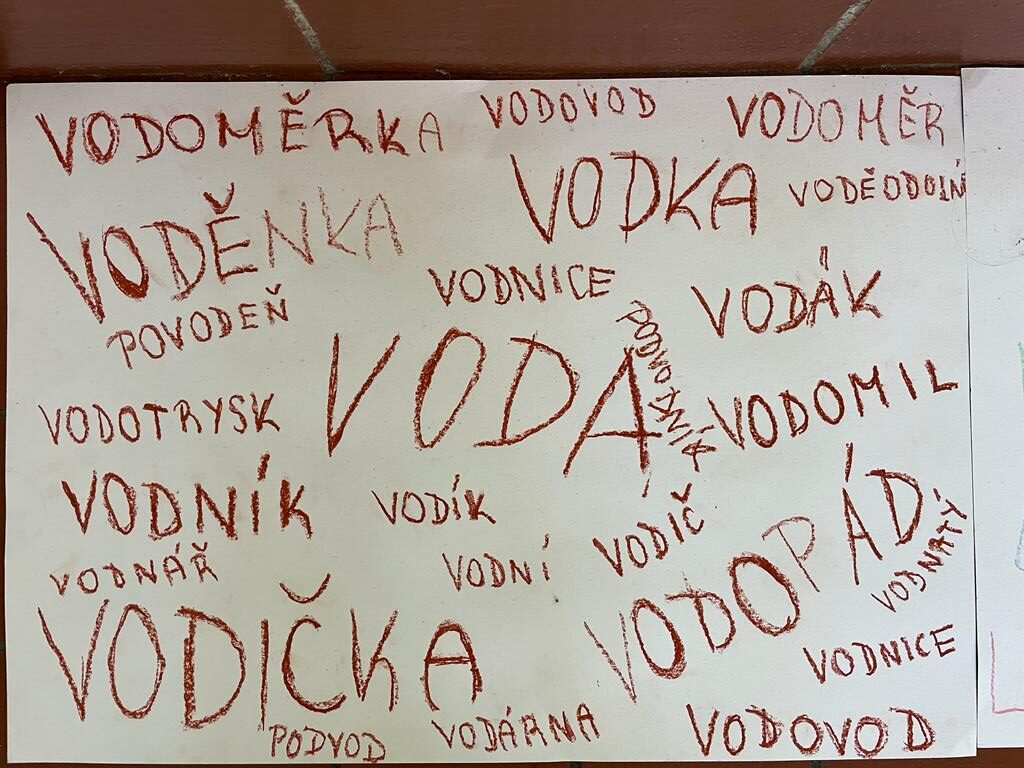 VODOMĚRKA
VODOVOD
VODOMĚR
VODKA
VODĚODOLN
VODĚNKA
VODNICE
VODÁK
POVODEŇ
VODA
VODOMIL
VODOTRYSK
VODNÍK
VODÍK
VODIČ
VODOPÁD
VODNÁŘ
VODNÍ
VODNATÝ
VODIČKA
VODNICE
PODVOD
VODÁRNA
VODOVOD